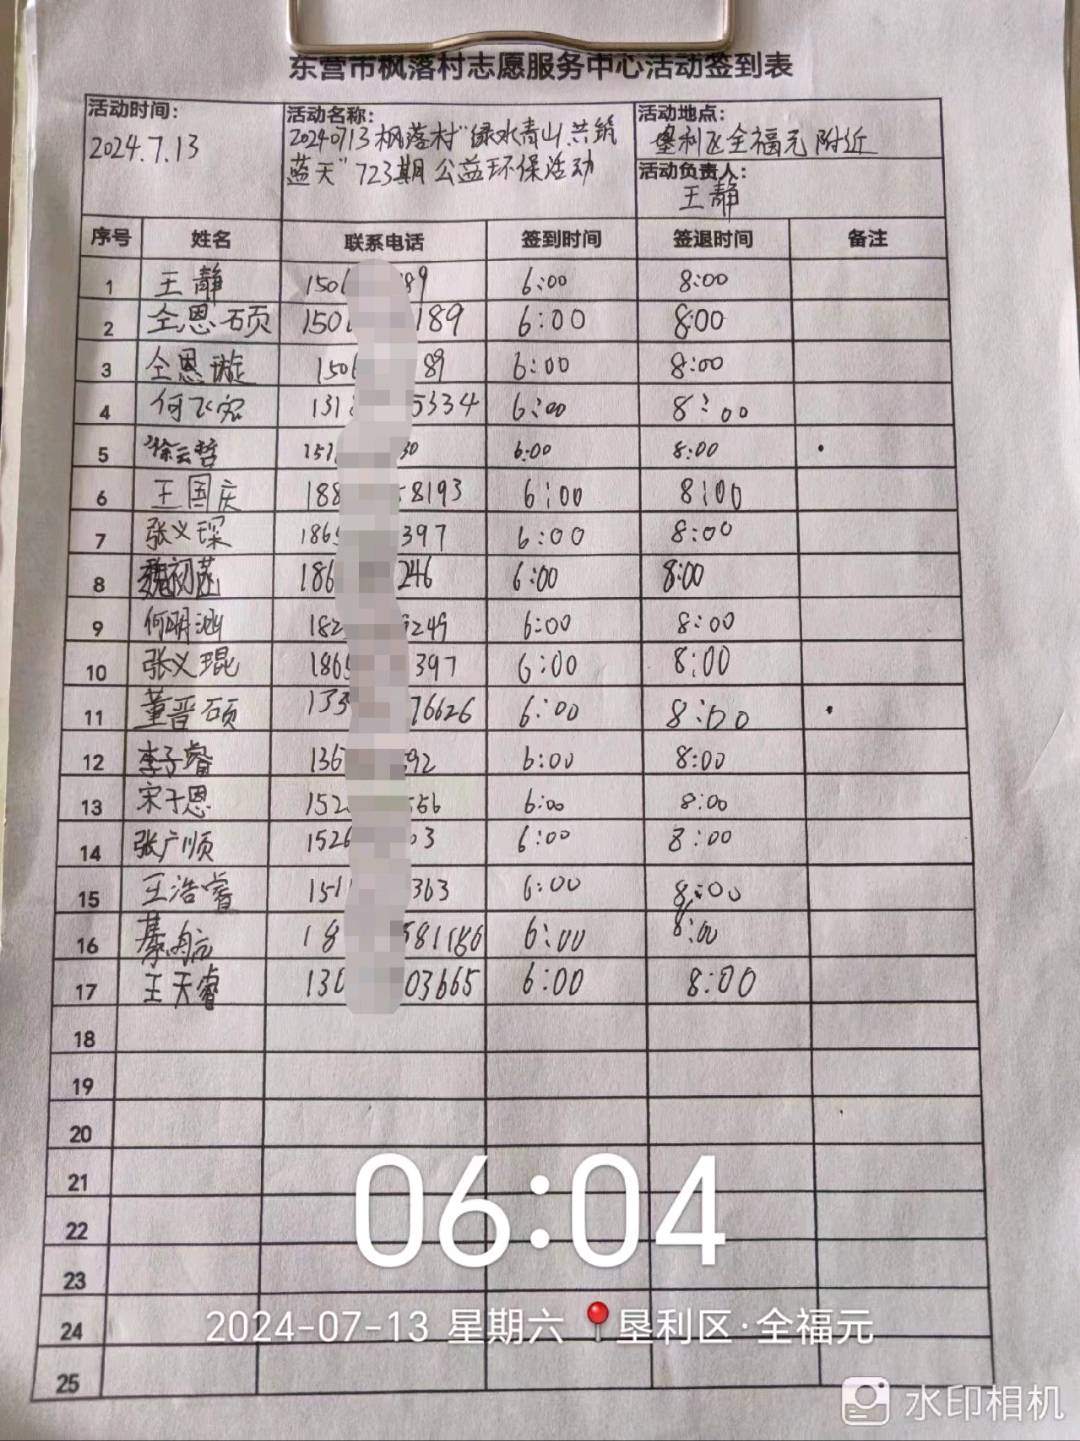 东营市枫落村志愿服务中心活动签到表
活动时间:
2024.7.13
活动名称:
20240713枫落村"绿水青山.共筑
蓝天"723期公益环保活动
活动地点:
垦利区全福元附近
活动负责人:
王静
序号 姓名 联系电话 签到时间 签退时间 备注
1 王静 150 89 6:00 8:00
2 仝恩硕 150 189 6:00 8:00
3 仝恩璇 150 89 6:00 8:00
4 何飞宏 131 5334 6:00 8:00
5 徐云哲 151 30 6:00 8:00
6 王国庆 188 58193 6:00 8:00
7 张义琛 1865 397 6:00 8:00
8 魏初 186 246 6:00 8:00
9 何明 182 9249 6:00 8:00
10 张义琨 1865 397 6:00 8:00
11 董晋硕 133 76626 6:00 8:00
12 李子睿 136 592 6:00 8:00
13 宋子恩 152 556 6:00 8:00
14 张广顺 1526 03 6:00 8:00
15 王浩睿 151 363 6:00 8:00
16 航 18 581186 6:00 8:00
17 王天睿 130 03665 6:00 8:00
18
19
20
21
22
23
24
25
06:04
2024-07-13 星期六 垦利区·全福元
水印相机